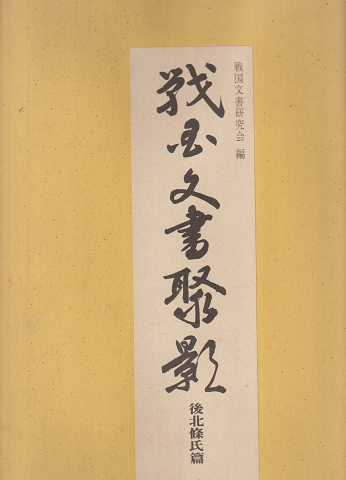 戦国文書研究会 編
戦国文書聚影
後北條氏篇